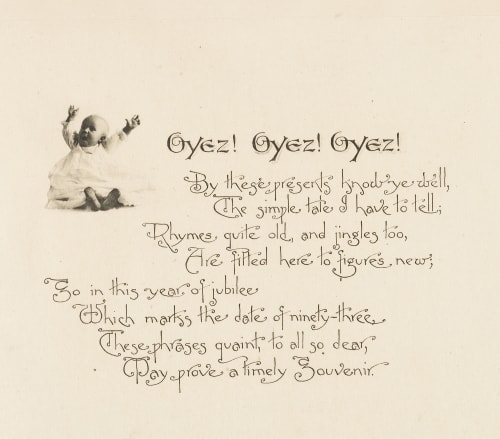 Oyez! Oyez! Oyez!
By these presents know ye well,
The simple tale I have to tell;
Rhymes quite old, and jingles too,
Are fitted here to figures new;
So in this year of jubilee
Which marks the date of ninety-three,
These phrases quaint, to all so dear,
May prove a timely Souvenir.